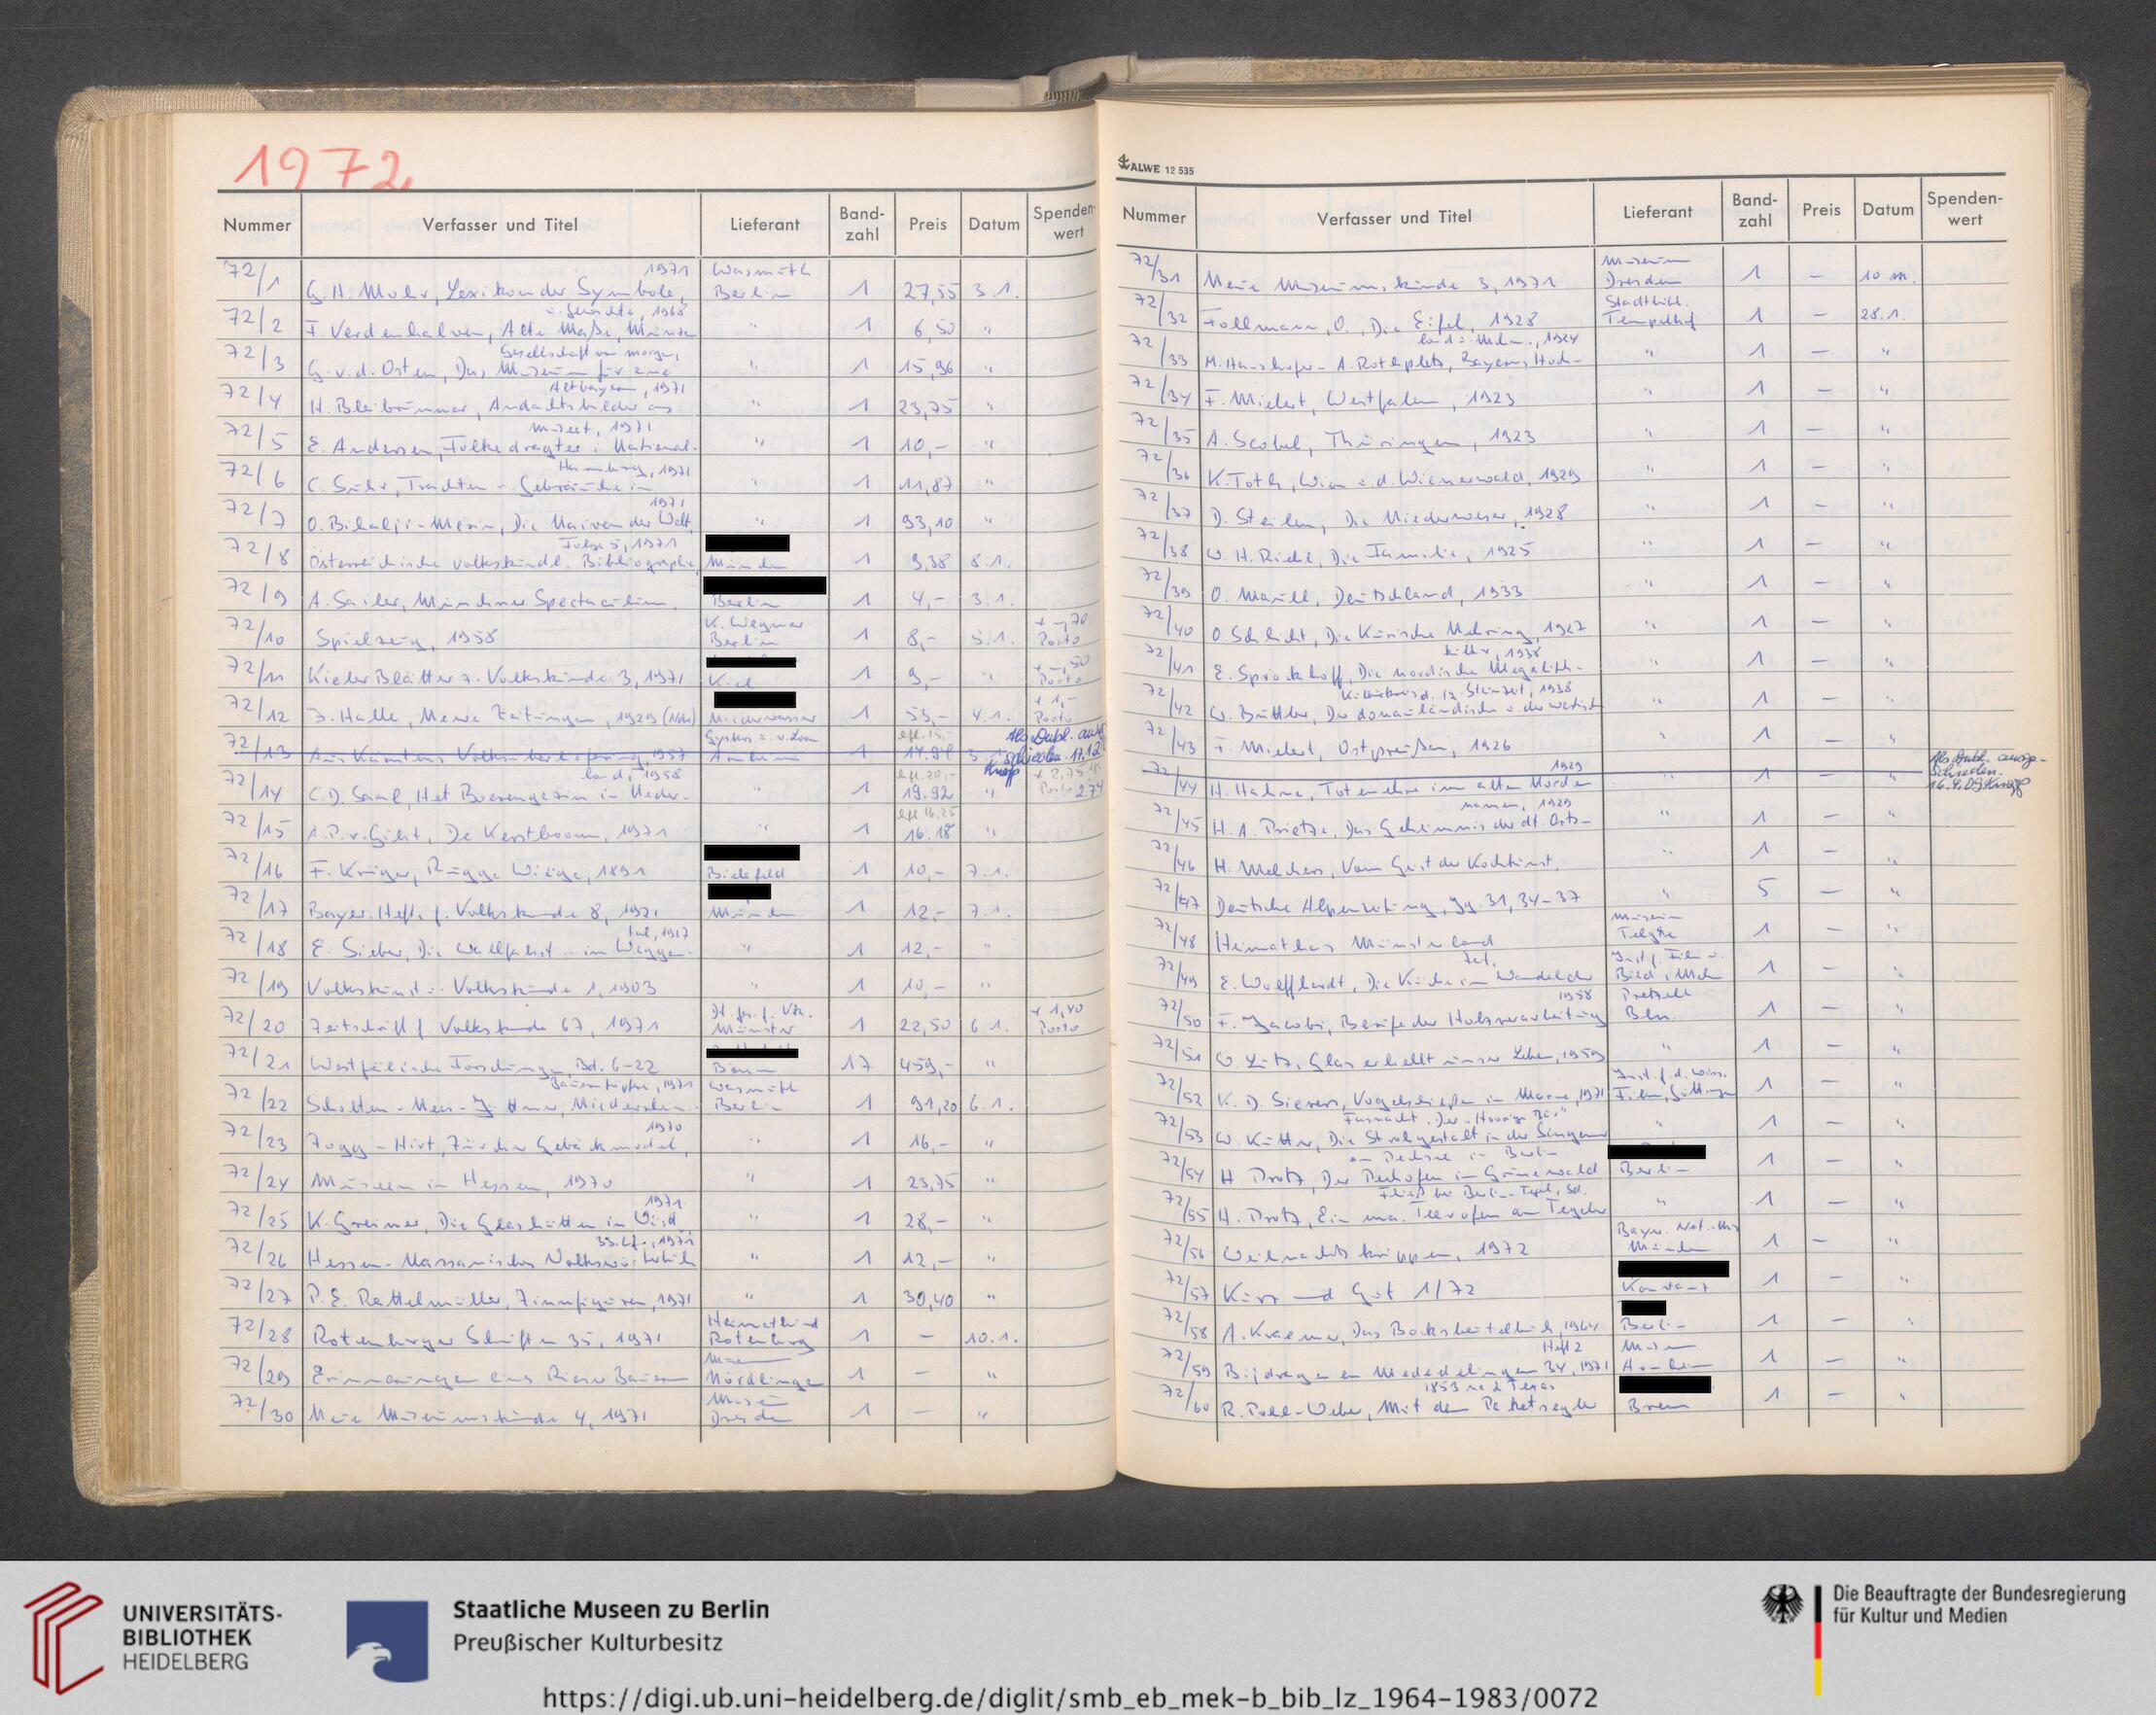 1972
Nummer Verfasser und Titel Lieferant Band-zahl Preis Datum Spenden-wert
72/1 G. H. Mohr, Lexikon der Symbole, 1971 Wasmuth Berlin 1 27,55 3.1.
72/2 F. Verdenhalven, Alte Maße, Münzen u. Gewichte, 1968 " 1 6,50 "
72/3 G. v. d. Osten, Das Museum für eine Gesellschaft von morgen, " 1 15,96 "
72/4 H. Bleibrunner, Andachtsbilder aus Altbayern, 1971 " 1 23,75 "
72/5 E. Andersen, Folkedragter i National-museet, 1971 " 1 10,- "
72/6 C. Suhr, Trachten u. Gebräuche in Hamburg, 1971 " 1 11,87 "
72/7 O. Bihalji-Merin, Die Naiven der Welt, 1971 " 1 93,10 "
72/8 Österreichische volkskundl. Bibliographie, Folge 5, 1971 München 1 9,38 8.1.
72/9 A. Sailer, Münchner Spectaculum, Berlin 1 4,- 3.1.
72/10 Spielzeug, 1958 K. Wegner Berlin 1 8,- 5.1. + -,70 Porto
72/11 Kieler Blätter z. Volkskunde 3, 1971 Kiel 1 9,- " + -,50 Porto
72/12 J. Halle, Newe Zeitungen, 1929 (Ndr) 1 53,- 4.1. + 1,- Porto
72/13 Aus Kärntens Volksüberlieferung, 1957 Gysbers u. v. Loon Arnheim 1 14.94 3.1. Als Dubl. ausgeschieden. 17.12 Knopp
72/14 C.D. Saal, Het Boerengezin in Nederland, 1958 " 1 hfl 20,- 19.92 " Porto 2.74
72/15 A.P. v. Gilst, De Kerstboom, 1971 " 1 hfl 16,25 16.18 "
72/16 F. Krüger, Rugge Wiege, 1891 Bielefeld 1 10,- 7.1.
72/17 Bayer. Hefte f. Volkskunde 8, 1921 München 1 12,- 7.1.
72/18 E. Sieber, Die Wallfahrt ... im Weggental, 1917 " 1 12,- "
72/19 Volkskunst u. Volkskunde 1, 1903 " 1 10,- "
72/20 Zeitschrift f. Volkskunde 67, 1971 Dt. Ges. f. Vk. Münster 1 22,50 6.1. + 1,40 Porto
72/21 Westfälische Forschungen, Bd. 6-22 Bonn 17 459,- "
72/22 Scholten-Neess-Jüttner, Niederrhein. Bauerntöpferei, 1971 Wasmuth Berlin 1 91,20 6.1.
72/23 Zogg-Hirt, Zürcher Gebäckmodel, 1970 " 1 16,- "
72/24 Museen in Hessen, 1970 " 1 23,75 "
72/25 K. Greiner, Die Glashütten in Württ, 1971 " 1 28,- "
72/26 Hessen-Nassauisches Volkswörterbuch 39. Lfg., 1971 " 1 12,- "
72/27 P. E. Rattelmüller, Zinnfiguren, 1971 " 1 30,40 "
72/28 Rotenburger Schriften 35, 1971 Heimatbund Rotenburg 1 - 10.1.
72/29 Erinnerungen eines Rieser Bauern Museum Nördlingen 1 - "
72/30 Neue Museumskunde 4, 1971 Museum Dresden 1 - "
ALWE 12 535
Nummer Verfasser und Titel Lieferant Band-zahl Preis Datum Spenden-wert
72/31 Neue Museumskunde 3, 1971 Museum Dresden 1 -
72/32 Follmann, O., Die Eifel, 1928 Stadtbibl. Tempelhof 1 - 28.1.
72/33 M. Haushofer - A. Rothpletz, Bayerns Hoch-land u. Mchn., 1924 " 1 - "
72/34 F. Mielert, Westfalen, 1923 " 1 - "
72/35 A. Scobel, Thüringen, 1923 " 1 - "
72/36 K. Toth, Wien u. d. Wienerwald, 1929 " 1 - "
72/37 D. Steilen, Die Niederweser, 1928 " 1 - "
72/38 W. H. Riehl, Die Familie, 1925 " 1 - "
72/39 O. Maull, Deutschland, 1933 " 1 - "
72/40 O. Schlicht, Die Kurische Nehrung, 1927 " 1 - "
72/41 E. Sprockhoff, Die nordische Megalith-kultur, 1938 " 1 - "
72/42 W. Buttler, Der donauländische u. der westische Kulturkreis d. jg. Steinzeit, 1938 " 1 - "
72/43 F. Mielert, Ostpreußen, 1926 " 1 - "
72/44 H. Hahne, Totenehre im alten Norden 1929 " 1 - " Als Dubl. ausge-schieden. 16.4.09 Knopp
72/45 H. A. Prietze, Das Geheimnis der dt. Orts-namen, 1929 " 1 - "
72/46 H. Melchers, Vom Geist der Kochkunst, " 1 - "
72/47 Deutsche Alpenzeitung, Jg. 31, 34-37 " 5 - "
72/48 Heimathaus Münsterland Museum Telgte 1 - "
72/49 E. Wolffhardt, Die Küche im Wandel der Zeit, Inst. f. Film u. Bild, Mchn 1 - "
72/50 F. Jacobs, Berufe der Holzverarbeitung 1958 Pretzell Bln. 1 - "
72/51 W. Lutz, Glas erhellt unser Leben, 1959 " 1 - "
72/52 K. D. Sievers, Vogelschießen in Marne, 1971 Inst. f. d. Wiss. Film, Göttingen 1 - "
72/53 W. Kutter, Die Strohgestalt in der Singener Fasnacht. Der "Hoorige Bär" " 1 - "
72/54 H. Protz, Der Pechofen im Grunewald am Pechsee in Berlin Berlin 1 - "
72/55 H. Protz, Ein ma. Teerofen am Tegeler Fließ bei Berlin-Tegel, Sd. " 1 - "
72/56 Weihnachtskrippen, 1972 Bayer. Nat.-Mus München 1 - "
72/57 Kunst und Gut 1/72 Konstanz 1 - "
72/58 A. Kraemer, Das Bocksbeutelbuch, 1964 Berlin 1 - "
72/59 Bijdragen en Mededelingen 34, 1971 Heft 2 Museum Arnheim 1 - "
72/60 R. Pohl-Weber, Mit dem Paketsegler 1853 nach Texas Bremen 1 - "
UNIVERSITÄTS-
BIBLIOTHEK
HEIDELBERG
Staatliche Museen zu Berlin
Preußischer Kulturbesitz
Die Beauftragte der Bundesregierung
für Kultur und Medien
https://digi.ub.uni-heidelberg.de/diglit/smb_eb_mek-b_bib_lz_1964-1983/0072